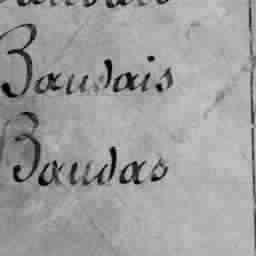 Baudais
Baudas